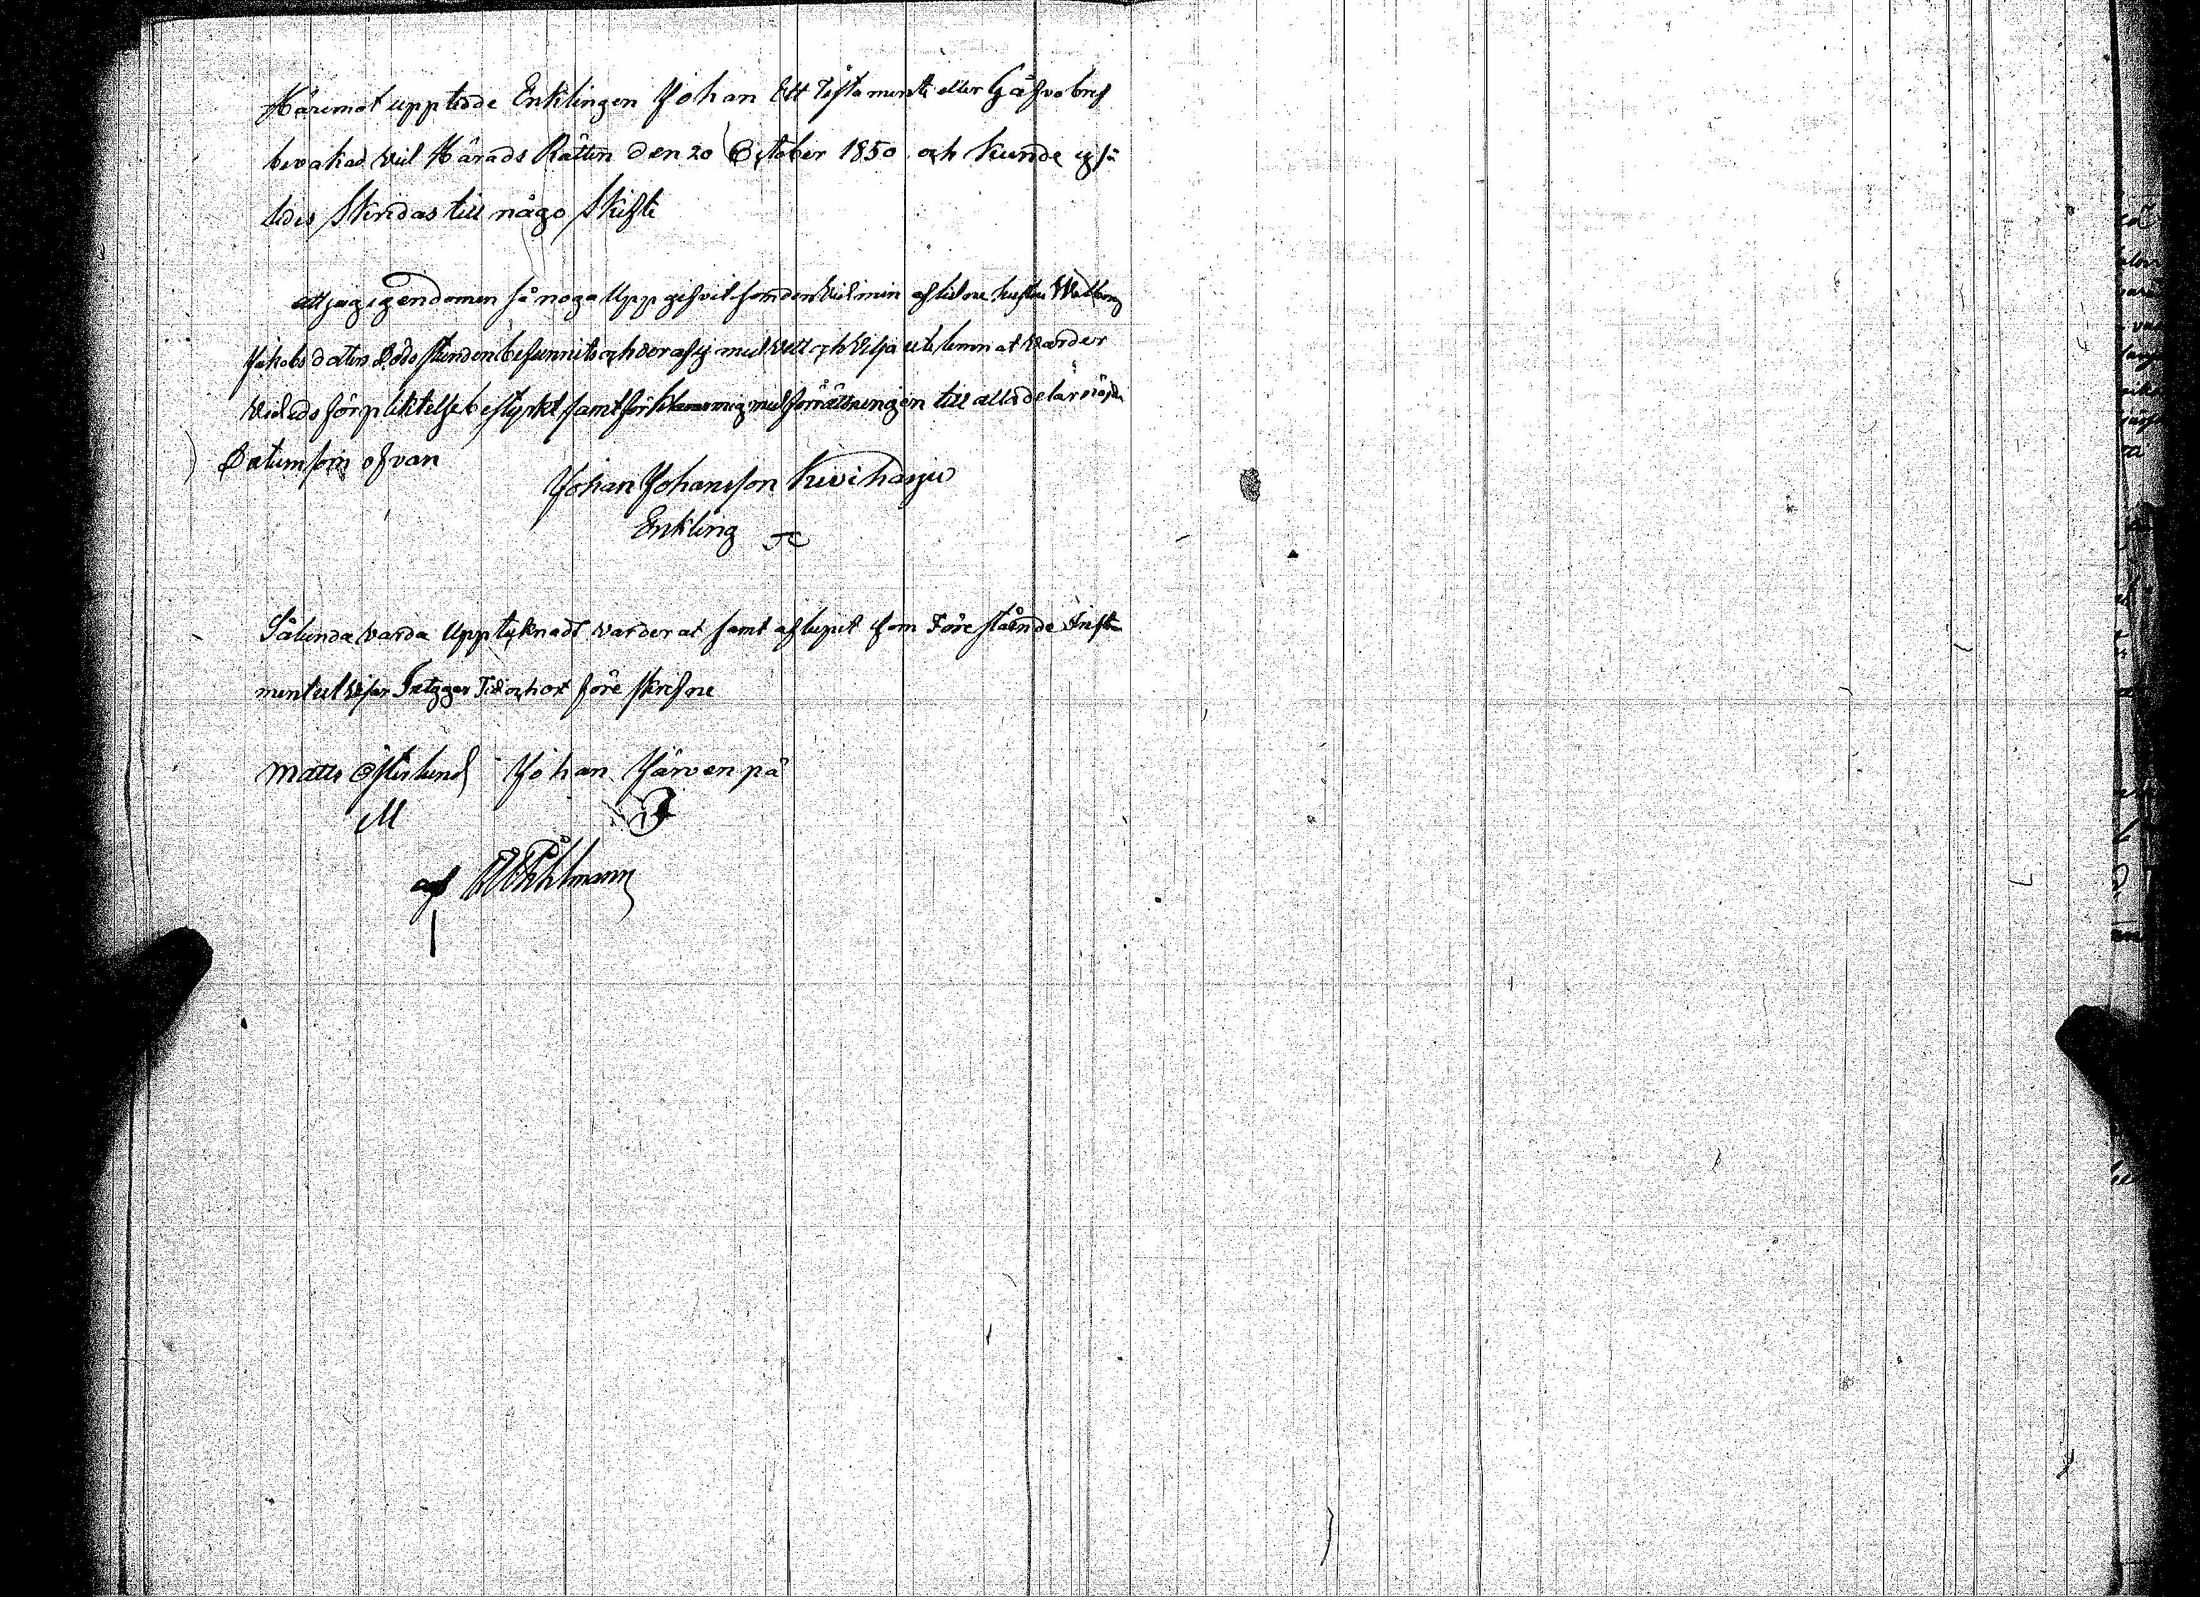 Häremot upptedde Enklingen Johan Ett Testamente eller Gåfvobref
bevakad vid Härads Rätten den 20 October 1850 och kunde ej så
ledes Skridas till någo Skifte
att jag egendomen så noga Uppgifvit som den vid min aflidne hustru Walborg
Jakobsdoters Dödsstunden befunnits och deraf ej med vett och vilja utelemnat varder
vid eds förplicktelse bestyrkt samt förklarar mig med förrättningen till alla delar nöjd
Datum som ofvan
Johan Johansson Kiviharju
Enkling
Sålunda varda Upptecknadt varderat samt aflupit somFöre stående Instru
ment utvisar Intygar Tid och ort före skrefne
Matts Österlund Johan Järvenpä
M
af Påhlmann